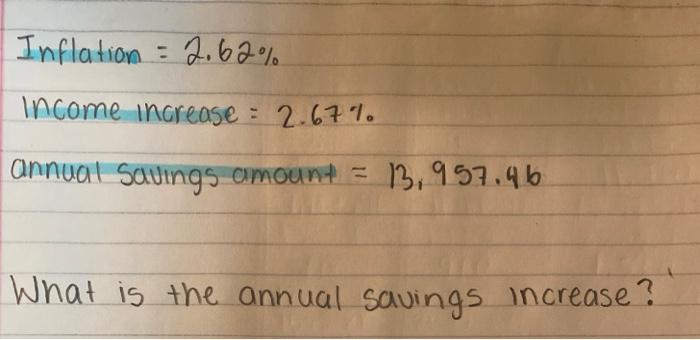 Inflation = 2.62%
Income increase = 2.67%
annual savings amount = 13,957.46
What is the annual savings increase?